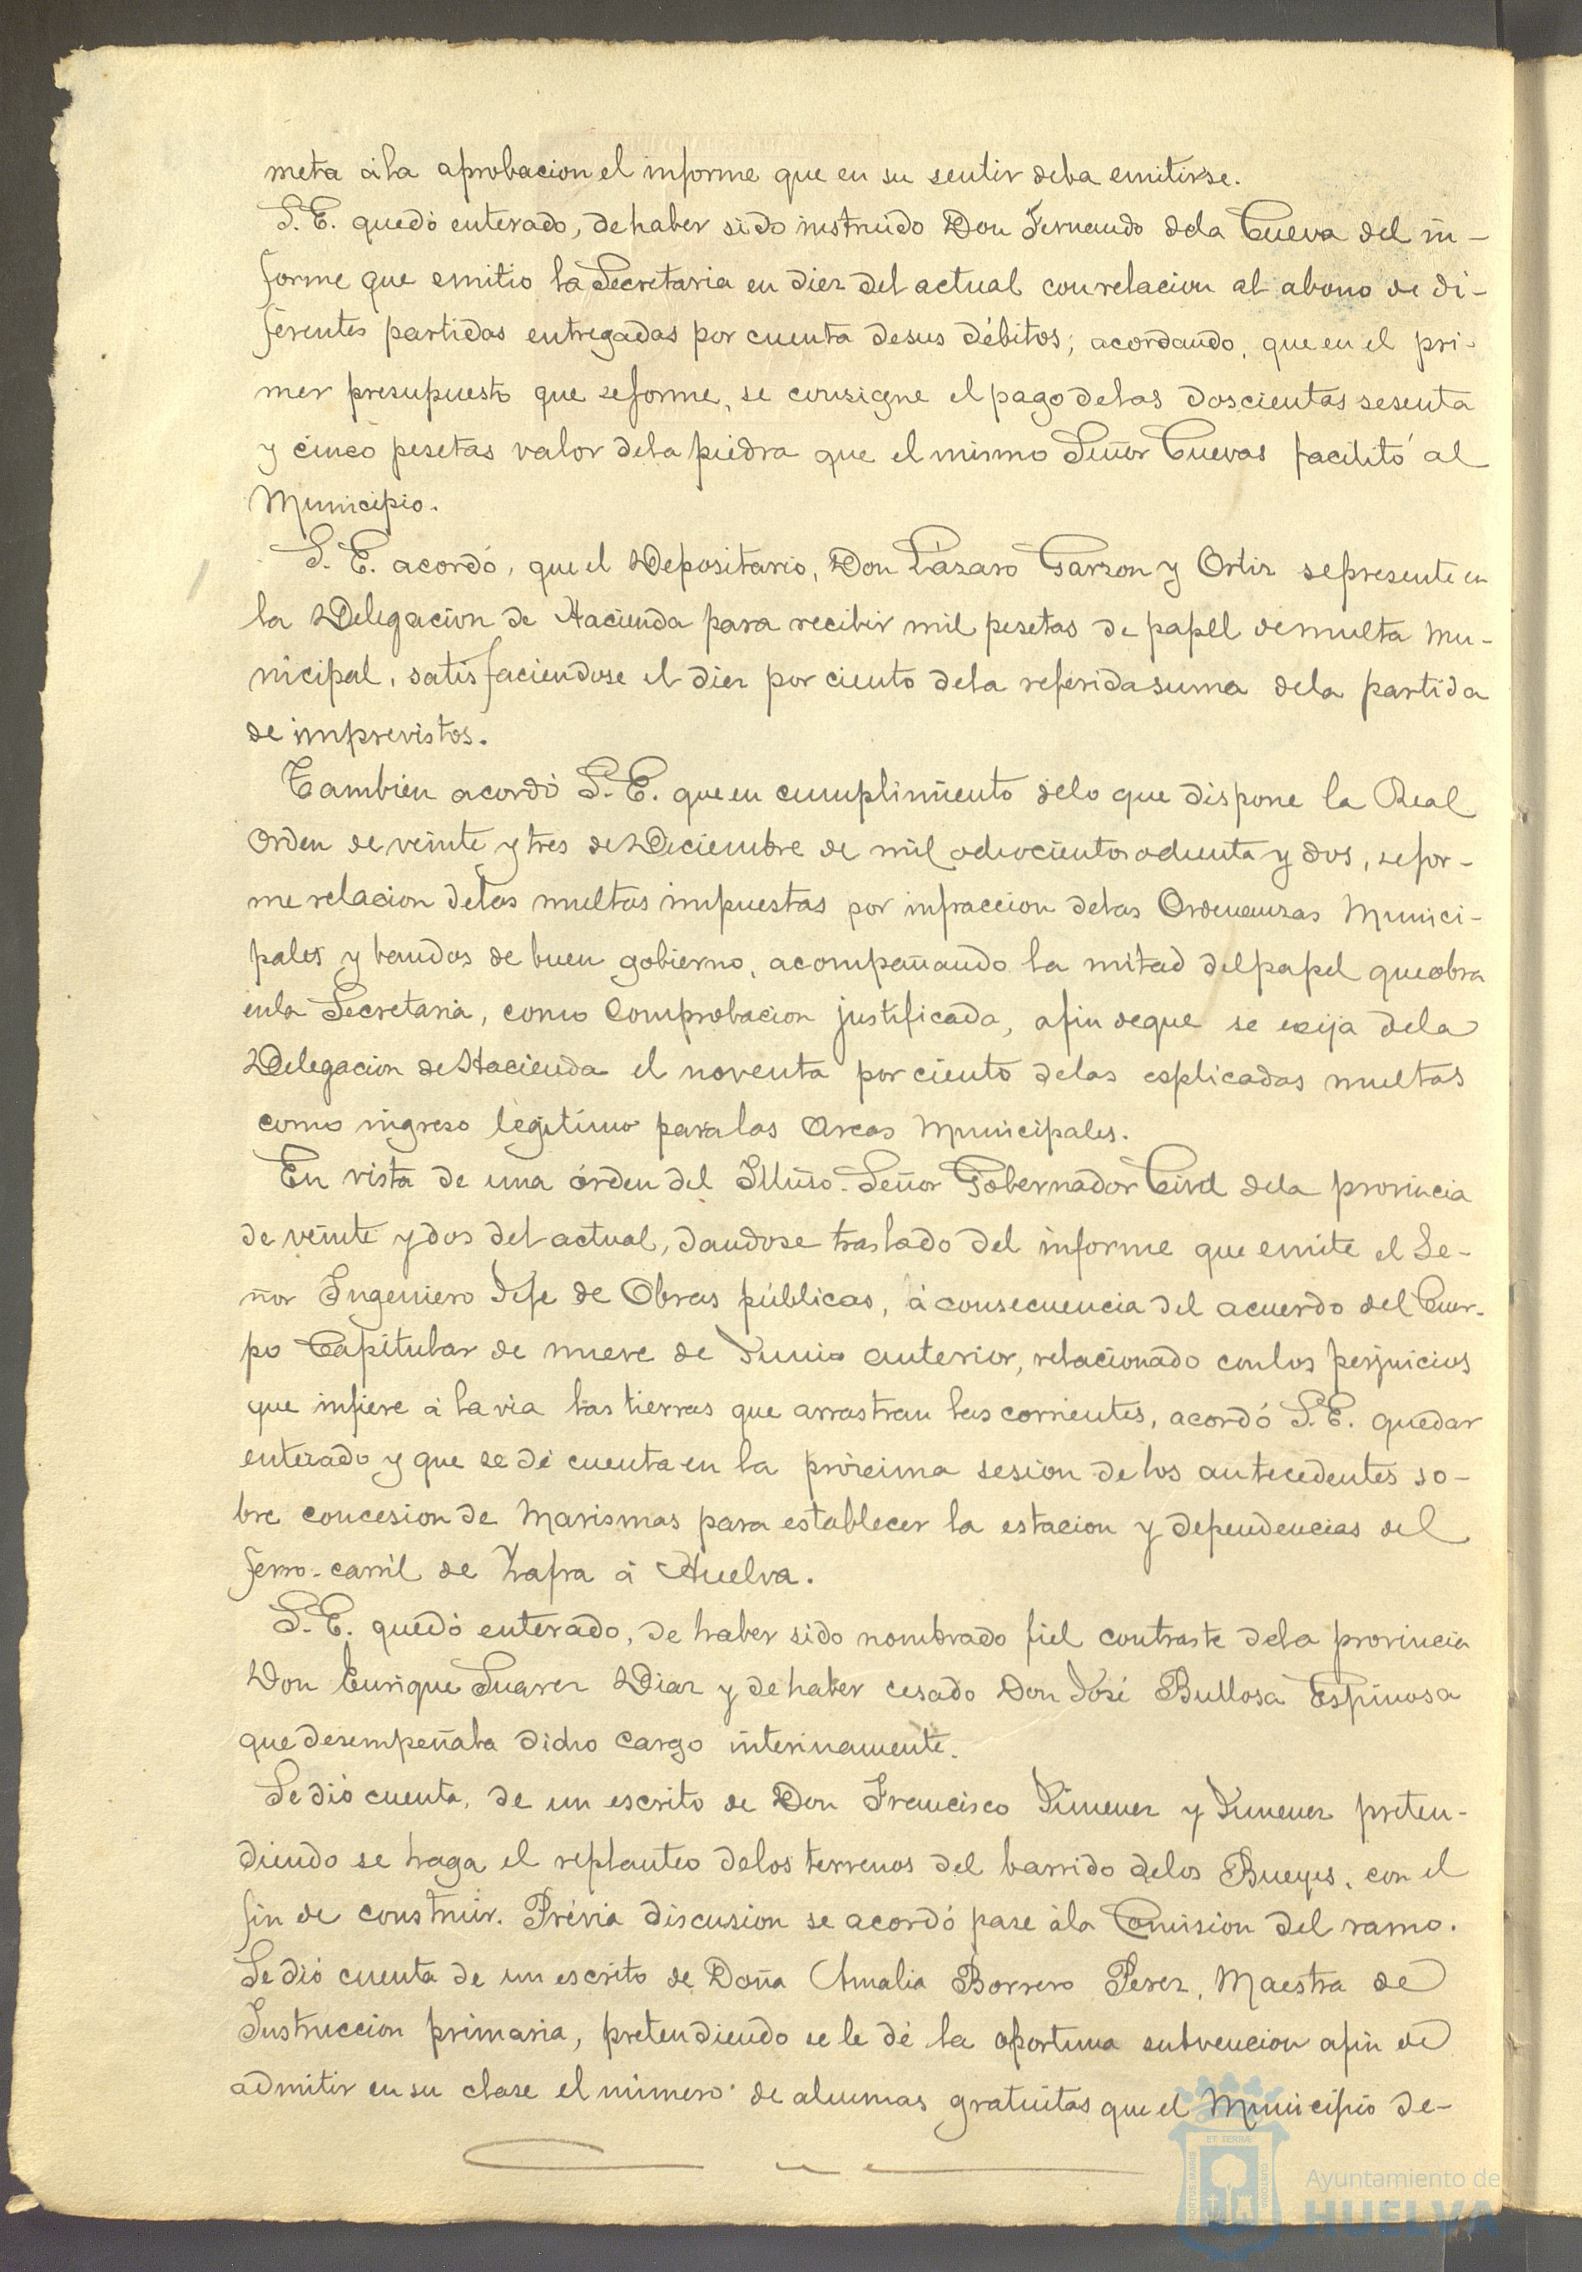 meta á la aprobacion el informe que en su sentir deba emitirse.
S. E. quedó enterado, de haber sido instruido Don Fernando de la Cueva del in-
forme que emitio la Secretaria en diez del actual con relacion al abono de di-
ferentes partidas entregadas por cuenta de sus débitos; acordando, que en el pri-
mer presupuesto que se forme, se consigne el pago de las doscientas sesenta
y cinco pesetas valor de la piedra que el mismo Señor Cuevas facilitó al
Municipio.
S. E. acordó, que el Depositario, Don Lázaro Garzon y Ortiz se presente en
la Delegacion de Hacienda para recibir mil pesetas de papel de multa mu-
nicipal, satisfaciendose el diez por ciento de la referida suma de la partida
de imprevistos.
Tambien acordó S. E. que en cumplimiento de lo que dispone la Real
Orden de veinte y tres de Deciembre de mil ochocientos ochenta y dos, se for-
me relacion de las multas impuestas por infraccion de las Ordenanzas Munici-
pales y bandos de buen gobierno, acompañando la mitad del papel que obra
en la Secretaria, como comprobacion justificada, afin de que se exija de la
Delegacion de Hacienda el noventa por ciento de las esplicadas multas
como ingreso legitimo para las Arcas Municipales.
En vista de una órden del Illmo. Señor Gobernador Civil de la provincia
de veinte y dos del actual, dandose traslado del informe que emite el Se-
ñor Ingeniero Jefe de Obras públicas, á consecuencia del acuerdo del Cuer-
po Capitular de nueve de Junio anterior, relacionado con los perjuicios
que infiere á la via las tierras que arrastran las corrientes, acordó S. E. quedar
enterado y que se dé cuenta en la próxima sesion de los antecedentes so-
bre concesion de Marismas para establecer la estacion y dependencias del
ferro-carril de Zafra á Huelva.
S. E. quedó enterado, de haber sido nombrado fiel contraste de la provincia
Don Enrique Suarez Diaz y de haber cesado Don José Bullosa Espinosa
que desempeñaba dicho cargo interinamente.
Se dió cuenta, de un escrito de Don Francisco Jimenez y Jimenez preten-
diendo se haga el replanteo de los terrenos del barrido de los Bueyes, con el
fin de construir. Prévia discusion se acordó pase á la Comision del ramo.
Se dió cuenta de un escrito de Doña Amalia Borrero Perez, Maestra de
Instruccion primaria, pretendiendo se le dé la oportuna subvencion afin de
admitir en su clase el número de alumnas gratuitas que el Municipio de-
Ayuntamiento de
HUELVA